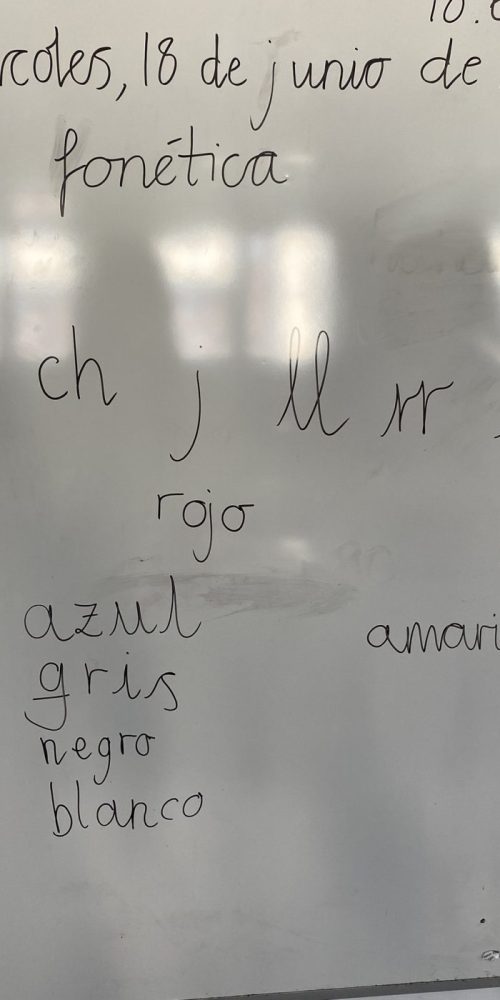 rcoles, 18 de junio de
fonética
ch j ll rr
rojo
azul amari
gris
negro
blanco